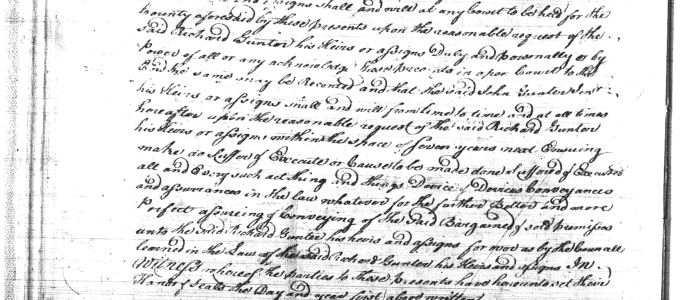 assigns shall and will at any Court to be held for the
County aforesaid by these presents upon the reasonable request of the
said Richard Gunter his Heirs or assigns Duly and personally or by
Power of all or any acknowledge these presents in open Court to the
End the same may be Recorded and that the said John Gunter Senr
his Heirs or assigns shall and will from time to time and at all times
hereafter upon the reasonable request of the said Richard Gunter
his Heirs or assigns within the space of seven years next Ensuing
make do suffer & Execute or Cause to be made done suffered & Executed
all and Every such act thing and things Device & Devices Conveyances
and assurances in the Law whatever for the further Better and more
Perfect assureing & Conveying of the said Bargained & sold premises
unto the said Richard Gunter his heirs and assigns for ever as by the Councill
learned in the Law of the said Richard Gunter his Heirs and assigns In
Witness whereof the parties to these presents have hereunto set their
Hands & Seals the Day and year first above written